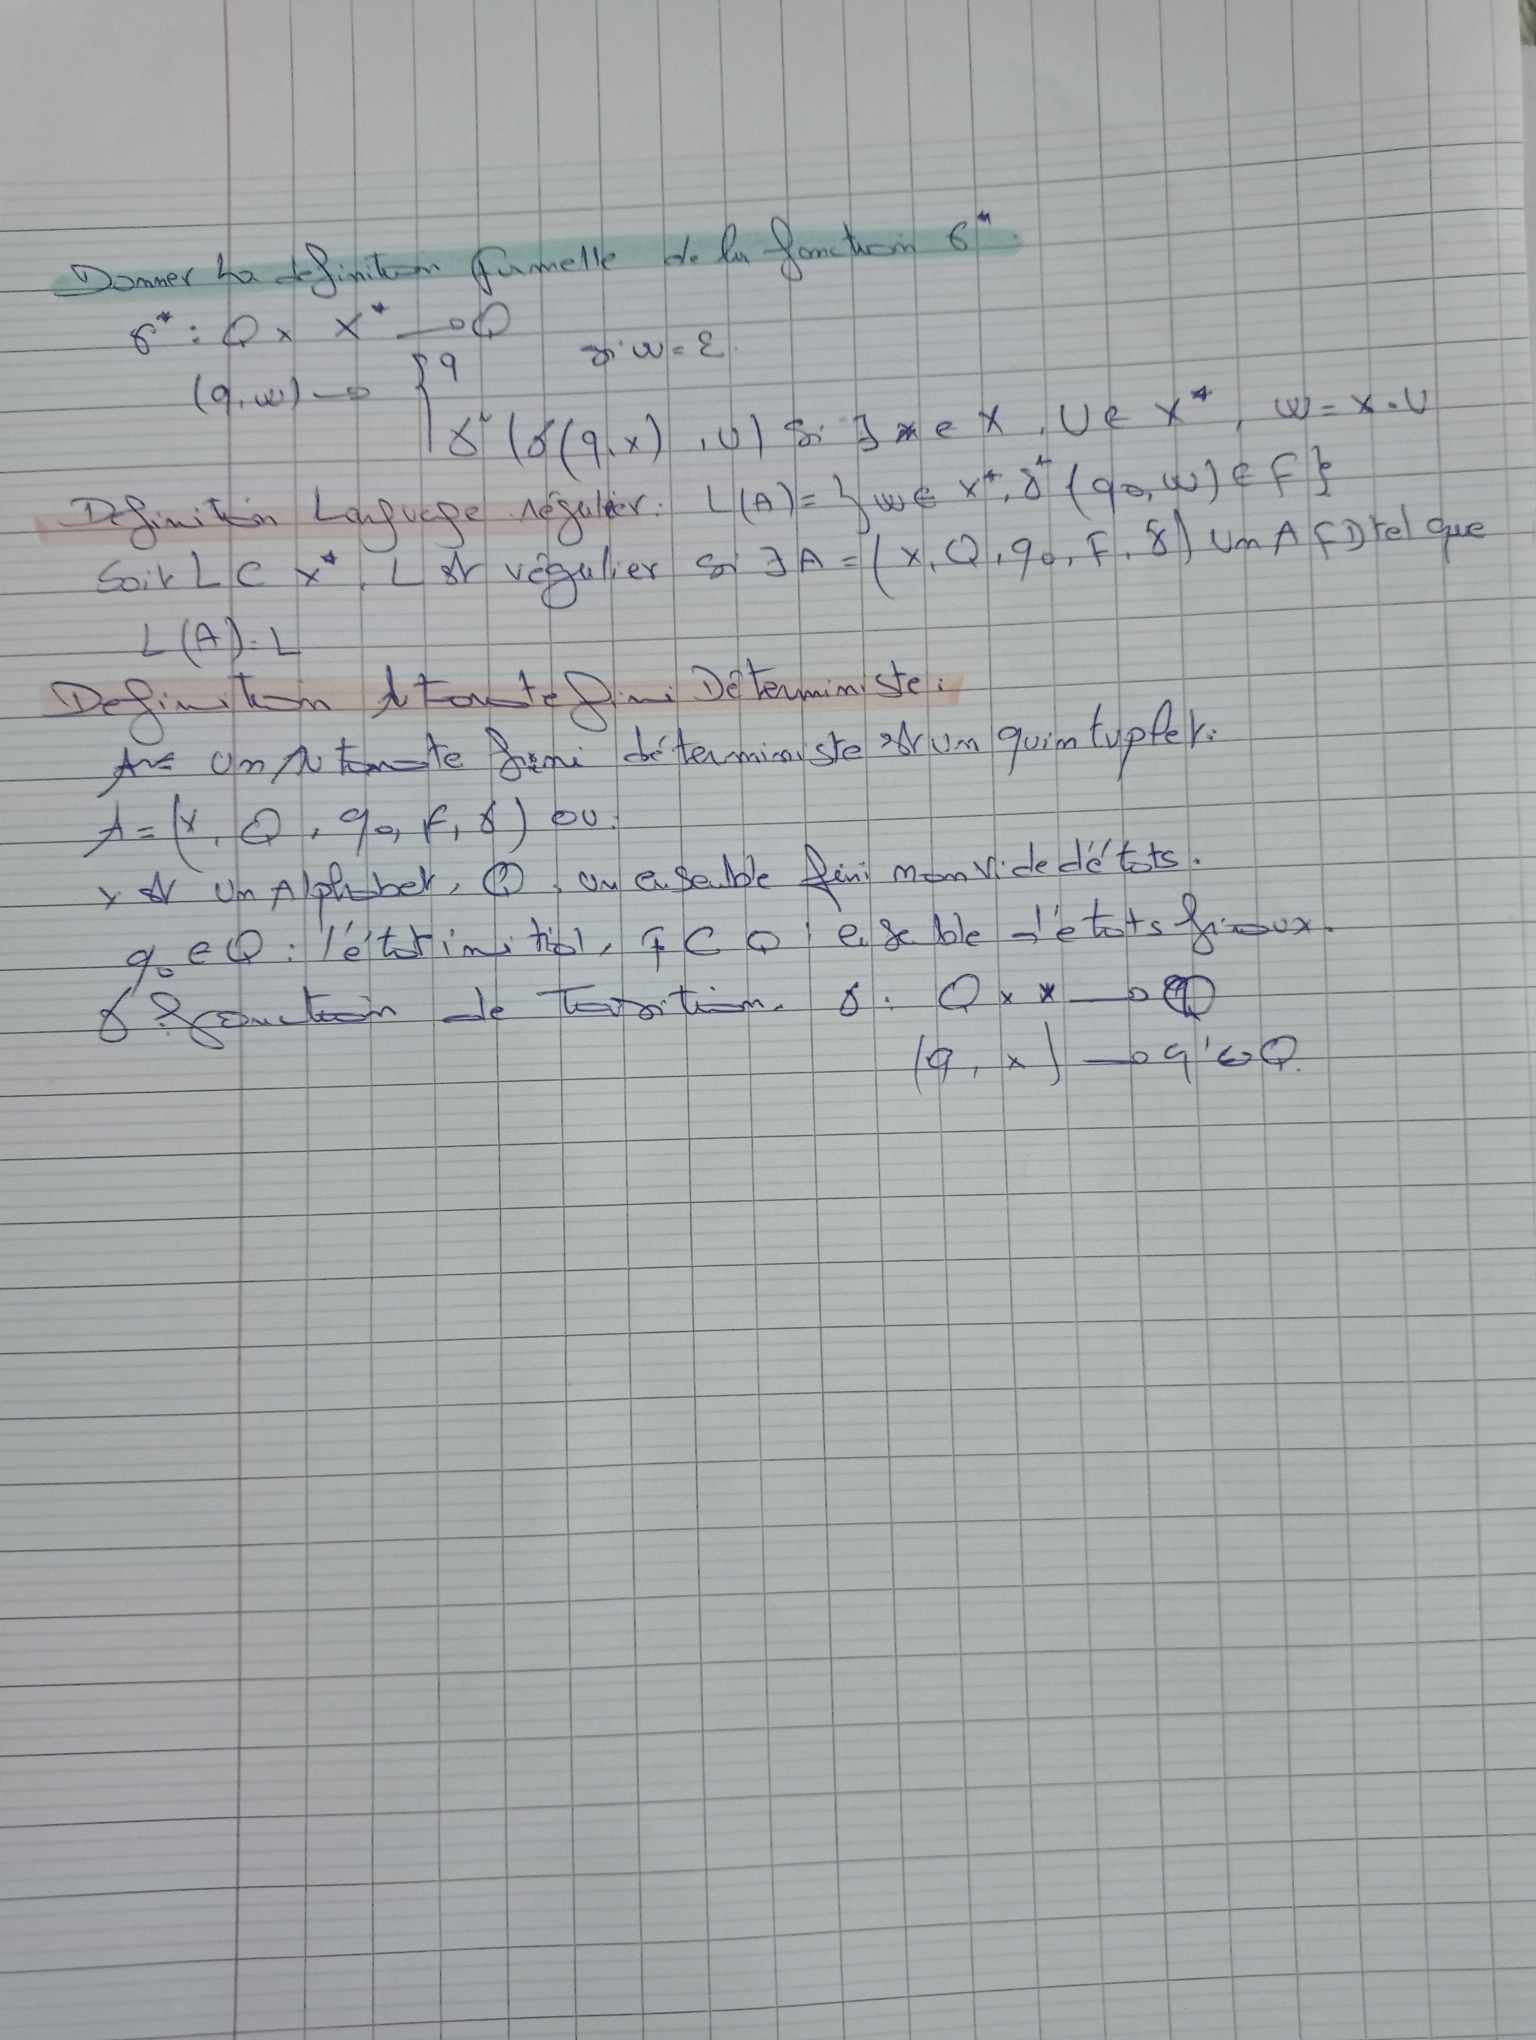 Donner La définition formelle de la fonction δ*.
δ* : Q x X* → Q
(q, w) → { q si w = ε.
δ*(δ(q, x), U) si ∃ x ∈ X, U ∈ X*, w = x . U
Definition Language régulier : L(A) = { w ∈ X*, δ*(q0, w) ∈ F }
Soit L ⊂ X*, L est régulier si ∃ A = (X, Q, q0, F, δ) un AFD tel que
L(A) = L
Definition Automate fini Déterministe :
Un Automate fini déterministe est un quintuplet.
A = (X, Q, q0, F, δ) ou :
X est un Alphabet, Q : un ensemble fini non vide d'états.
q0 ∈ Q : l'état initial, F ⊂ Q : ensemble d'états finaux.
δ : fonction de transition. δ : Q x X → Q
(q, x) → q' ∈ Q.